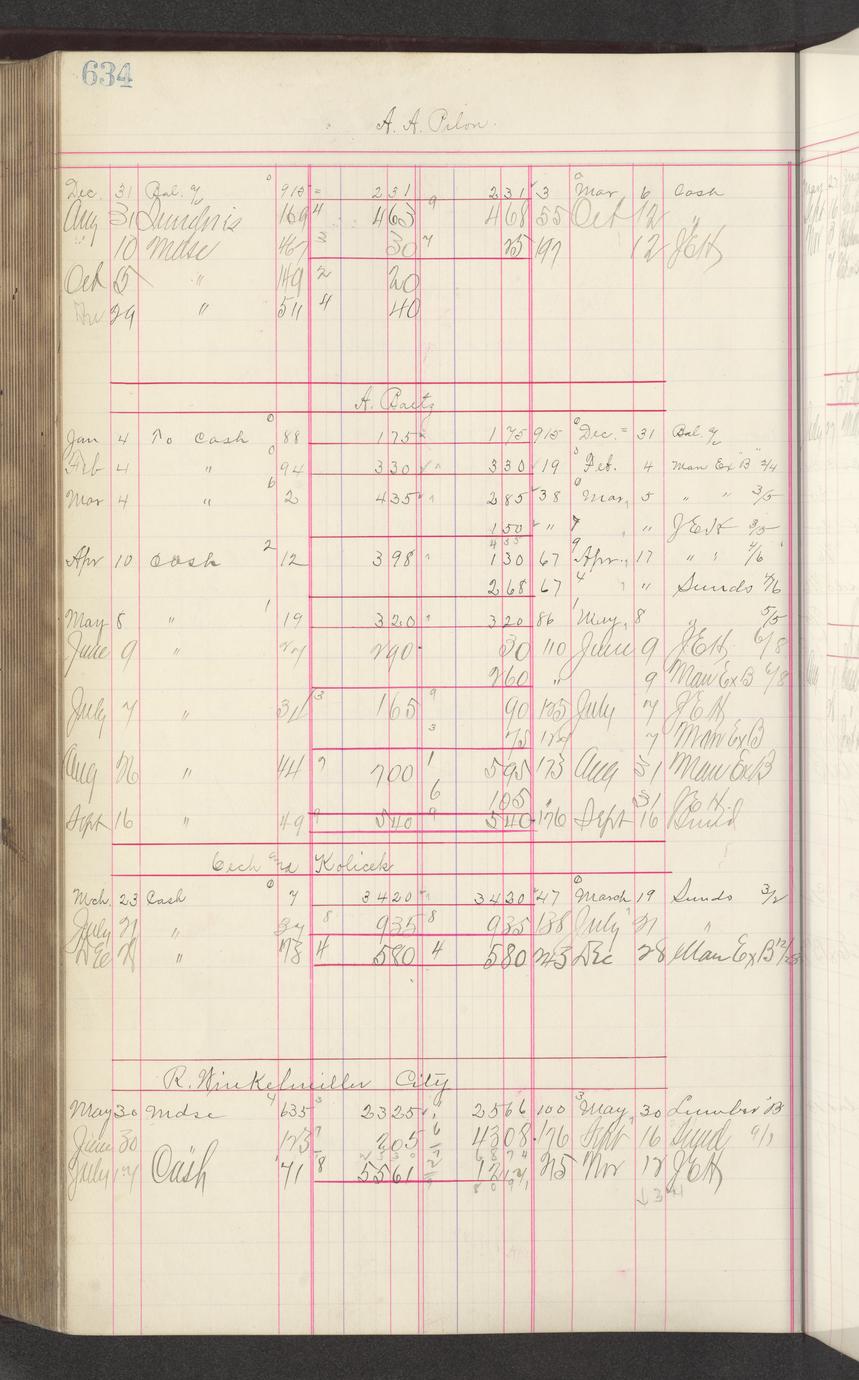 634
A. A. Pilon.
Dec. 31 Bal. 915 231 231 3 Mar. 6 Cash
Aug 31 Sundris 169 4 463 9 468 55 Oct 12 "
" 10 Mdse 467 3 30 7 25 197 12 JEH
Oct 5 " 149 2 20
29 " 511 4 40
A. Baetz
Jan 4 To Cash 88 175 175 915 Dec. 31 Bal.
Feb 4 " 94 330 330 19 Feb. 4 Man Ex "B" 2/4
Mar 4 " 2 435 285 38 Mar, 5 " " 3/5
150 " 7 " JEH 3/5
435
Apr 10 Cash 12 398 130 67 Apr., 17 " " 4/6
268 67 4 " Sunds 4/6
May 8 " 19 320 320 86 May, 8 " 5/5
June 9 " 27 290 30 110 June 9 JEH 6/8
260 " 9 Man Ex B 6/8
July 7 " 34 3 165 9 90 135 July 7 JEH
3 75 7 Man Ex B
Aug 26 " 44 7 700 1 595 173 Aug 31 Man Ex B
6 105 31 JEH.
Sept 16 " 49 540 9 540 176 Sept 16
Cech and Kolicek
Mch. 23 Cash 7 3420 3420 47 March 19 Sunds 3/2
July 21 " 37 8 935 8 935 138 July 21 "
Dec 28 " 78 4 580 4 580 243 Dec 28 Man Ex B 12/28
R. Winkelmiller City
May 30 Mdse 4 635 3 2325 2566 100 3 May, 30 Lumber B
June 30 123 7 205 6 4308 176 Sept 16 Sund 9/1
July 17 Cash 71 8 5561 1217 215 Nov 12 JEH